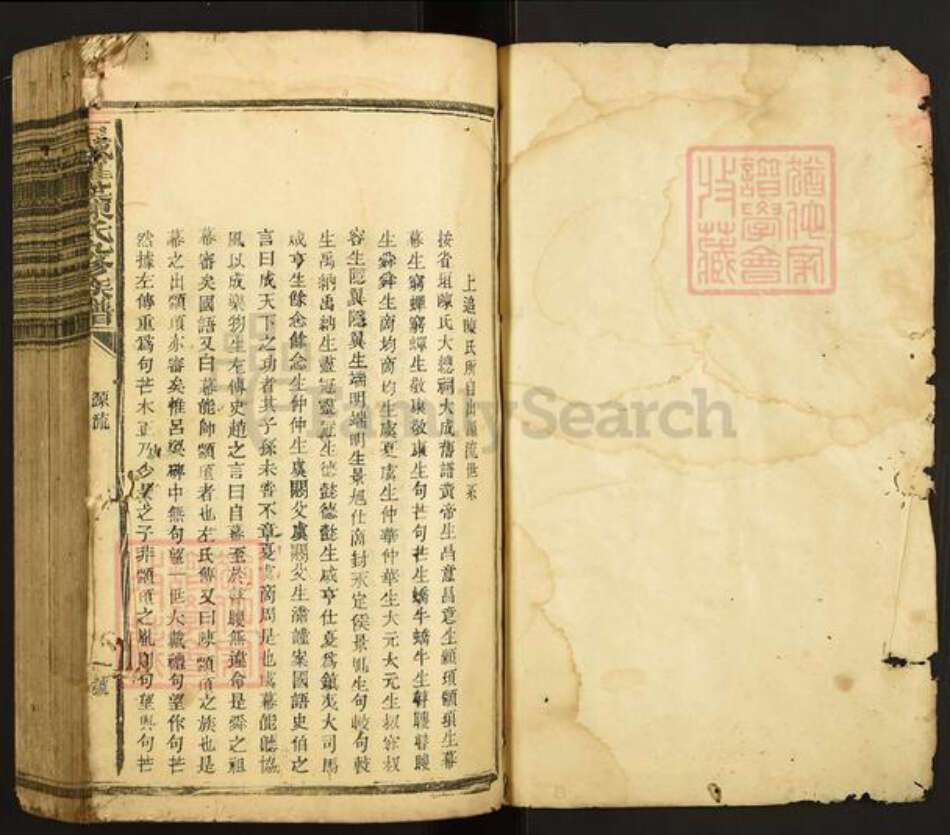 上追陳氏所自出源流世系
按省垣陳氏大總祠大成舊譜黃帝生昌意昌意生顓頊顓頊生幕
幕生窮蟬窮蟬生敬康敬康生句芒句芒生蟜牛蟜牛生瞽瞍瞽瞍
生舜舜生商均商均生虞夏虞生仲華仲華生大元大元生叔容叔
容生隱翼隱翼生端明端明生景旭仕商封永定侯景旭生句岐句岐
生禹納禹納生靈冠靈冠生德懿德懿生咸亨仕夏爲鎮夷大司馬
咸亨生餘念餘念生仲仲生虞閼父虞閼父生滿謹案國語史伯之
言曰成天下之功者其子孫未嘗不章夏商周是也虞幕能聽協
風以成樂物生左傳史趙之言曰自幕至於瞽瞍無違命是舜之祖
幕審矣國語又曰幕能帥顓頊者也左氏傳又曰陳顓頊之族也是
幕之出顓頊亦審矣惟呂梁碑中無句望一世大戴禮句望作句芒
然據左傳重爲句芒木正乃少皞之子非顓頊之胤則句望與句芒
陳氏九修族譜
源流
一號
猶他家
譜學會
收藏
FamilySearch